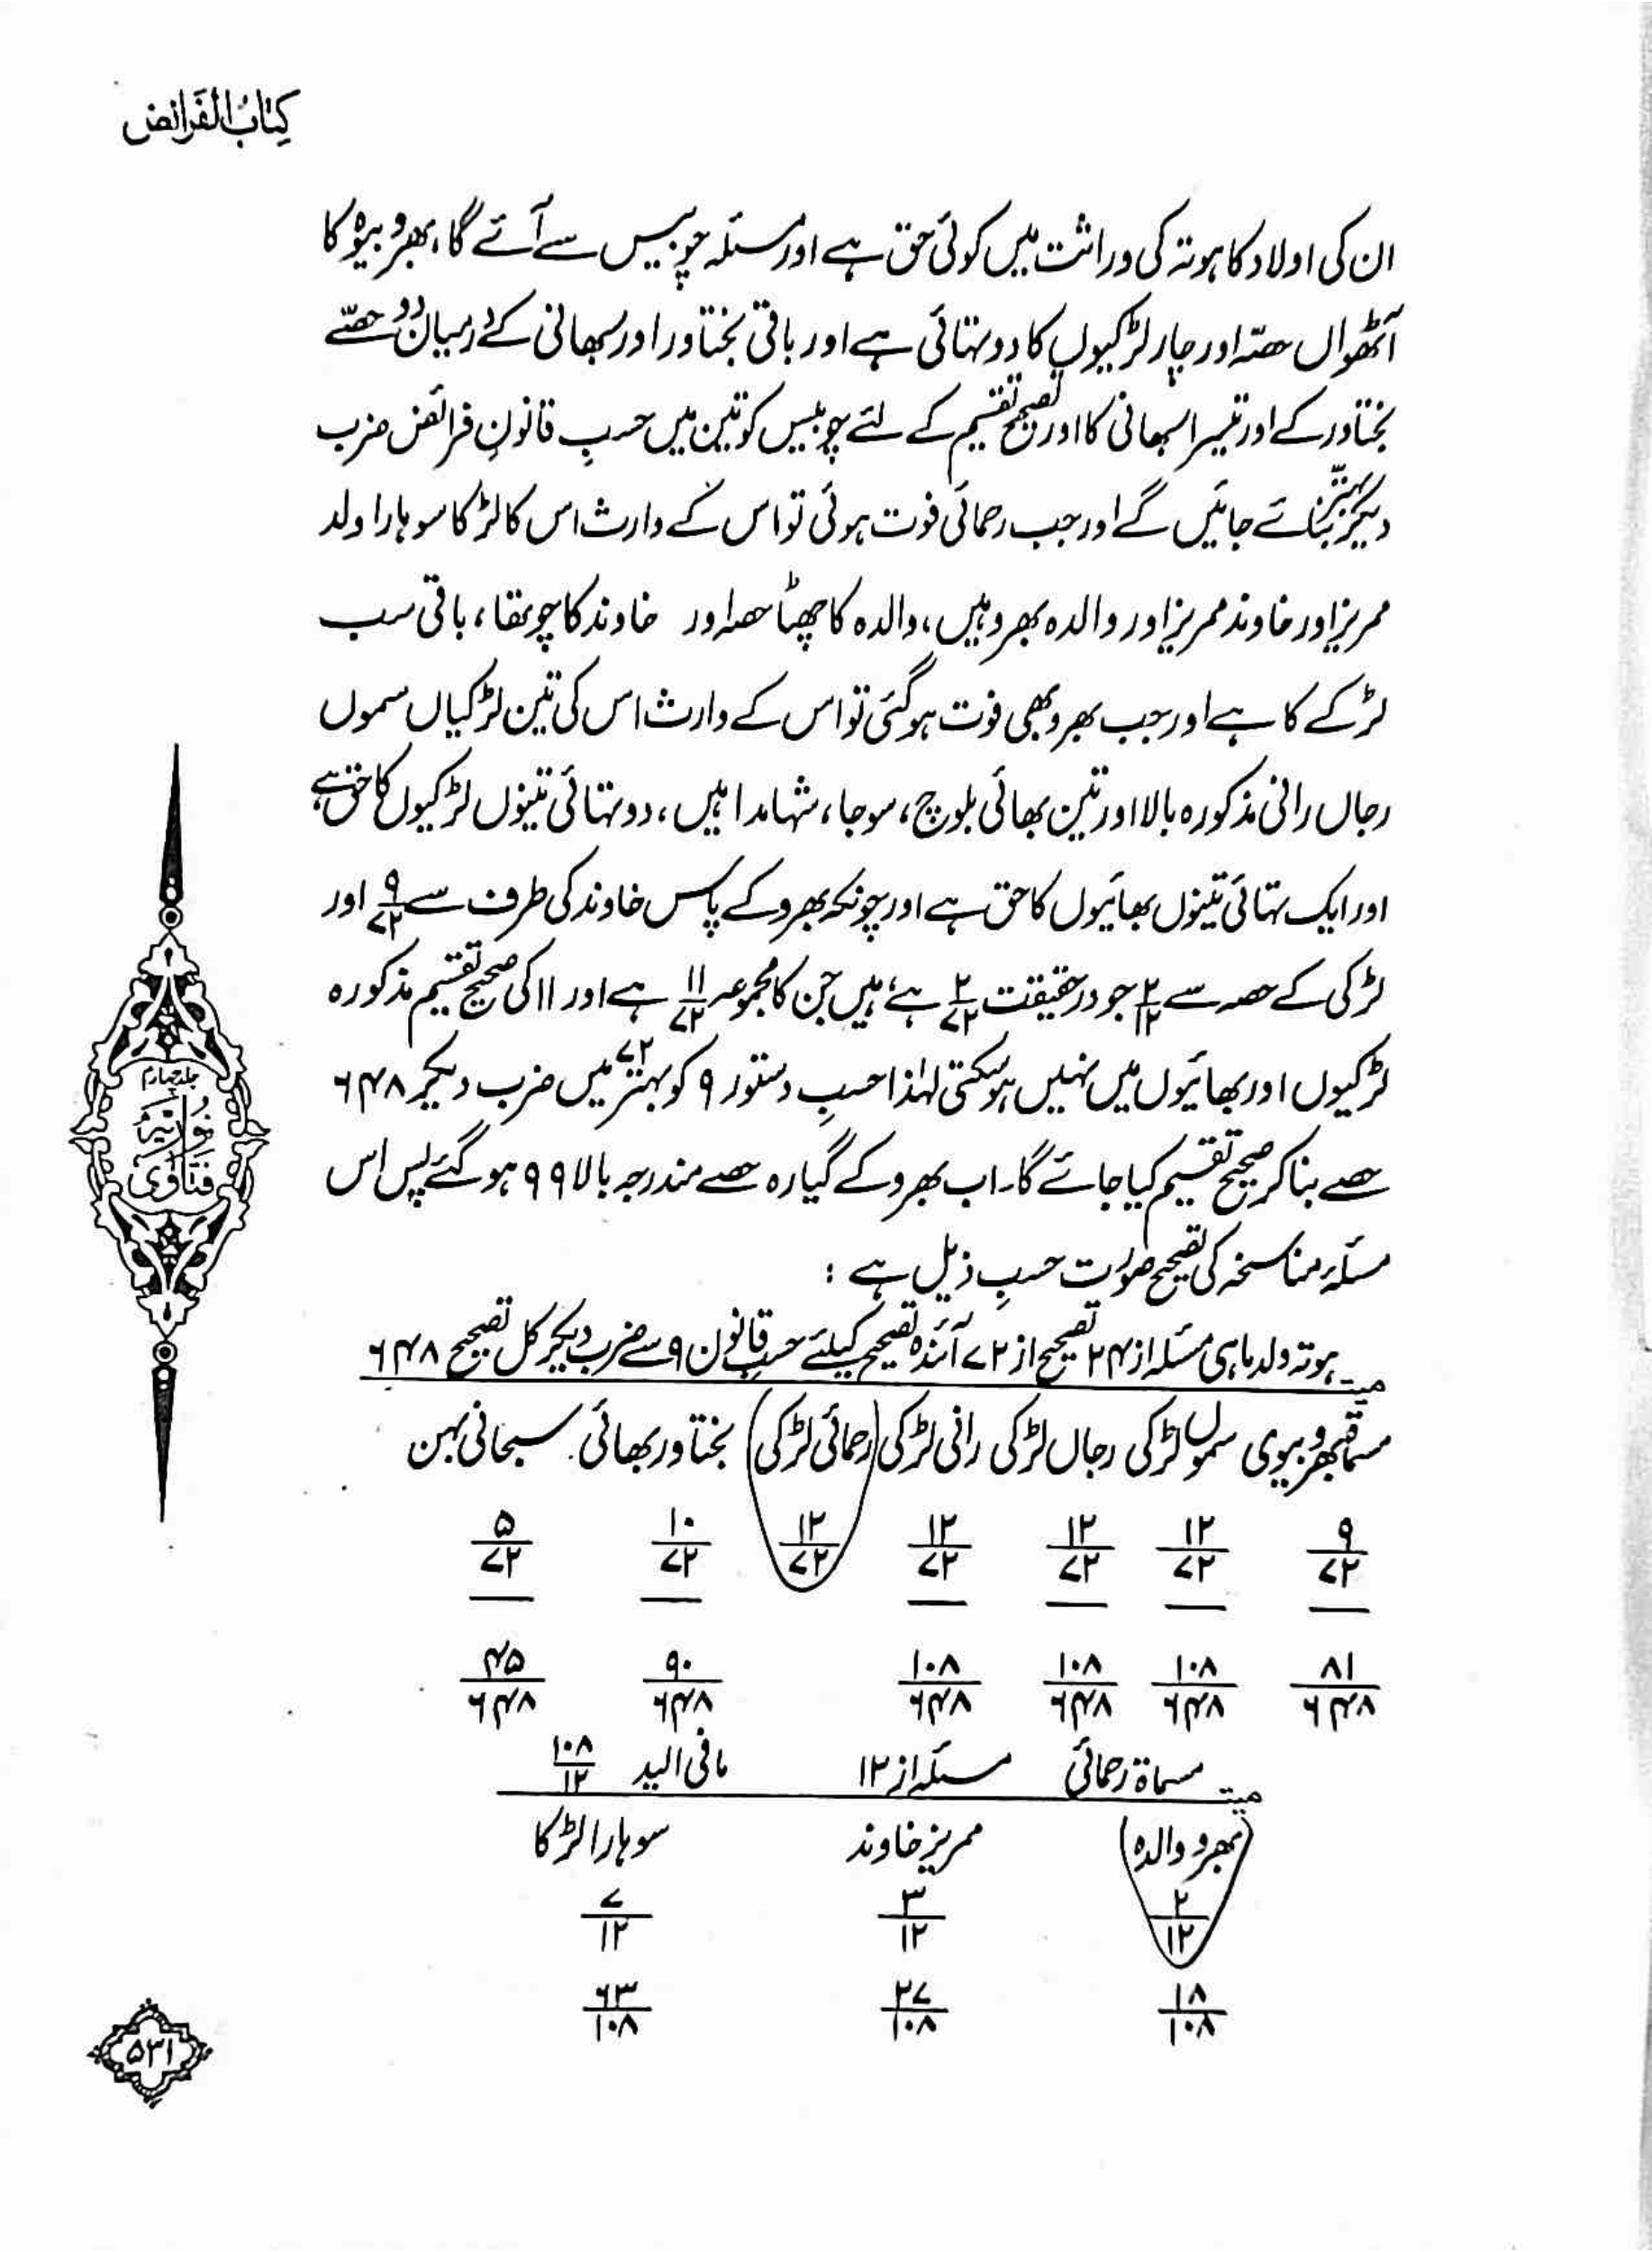 کتاب الفرائض
ان کی اولاد کا ہوتہ کی وراثت میں کوئی حق ہے اور مسئلہ چوبیس سے آئے گا، بھرو بیوہ کا
آٹھواں حصّہ اور چار لڑکیوں کا دو تہائی ہے اور باقی بختاور اور سبھانی کے درمیان دو حصّے
بختاور کے اور تیسرا سبھانی کا اور تصحیح تقسیم کے لئے چوبیس کو تین میں حسبِ قانونِ فرائض ضرب
دیکر بہتّر بنائے جائیں گے اور جب رحمائی فوت ہوئی تو اس کے وارث اس کا لڑکا سوہارا ولد
ممریز اور خاوند ممریز اور والدہ بھرو ہیں، والدہ کا چھٹا حصہ اور خاوند کا چوتھا، باقی سب
لڑکے کا ہے اور جب بھرو بھی فوت ہوگئی تو اس کے وارث اس کی تین لڑکیاں سموں
رجاں رانی مذکورہ بالا اور تین بھائی بلوچ، سوجا، شہامدا ہیں، دو تہائی تینوں لڑکیوں کا حق ہے
اور ایک تہائی تینوں بھائیوں کا حق ہے اور چونکہ بھرو کے پاس خاوند کی طرف سے ۹/۷۲ اور
لڑکی کے حصہ سے ۲/۱۲ جو درحقیقت ۲/۷۲ ہے، ہیں جن کا مجموعہ ۱۱/۷۲ ہے اور ۱۱ کی صحیح تقسیم مذکورہ
لڑکیوں اور بھائیوں میں نہیں ہوسکتی لہٰذا حسبِ دستور ۹ کو بہتّر ۷۲ میں ضرب دیکر ۶۴۸
حصے بنا کر صحیح تقسیم کیا جائے گا۔ اب بھرو کے گیارہ حصے مندرجہ بالا ۹۹ ہوگئے پس اس
مسئلہ مناسخہ کی تصحیح صورت حسبِ ذیل ہے :
میت ہوتہ ولد ماہی مسئلہ از ۲۴ تصحیح از ۷۲ آئندہ تصحیح کیلئے حسبِ قانون ۹ سے ضرب دیکر کل تصحیح ۶۴۸
مسماۃ بھرو بیوی سموں لڑکی رجاں لڑکی رانی لڑکی (رحمائی لڑکی) بختاور بھائی سبحانی بہن
۹/۷۲ ۱۲/۷۲ ۱۲/۷۲ ۱۲/۷۲ ۱۲/۷۲ ۱۰/۷۲ ۵/۷۲
۸۱/۶۴۸ ۱۰۸/۶۴۸ ۱۰۸/۶۴۸ ۱۰۸/۶۴۸ ۹۰/۶۴۸ ۴۵/۶۴۸
میت مسماۃ رحمائی مسئلہ از ۱۲ مافی الید ۱۰۸/۱۲
(بھرو والدہ) ممریز خاوند سوہارا لڑکا
۲/۱۲ ۳/۱۲ ۷/۱۲
۱۸/۱۰۸ ۲۷/۱۰۸ ۶۳/۱۰۸
جلد چہارم
نوریہ
فتاویٰ
۵۳۱